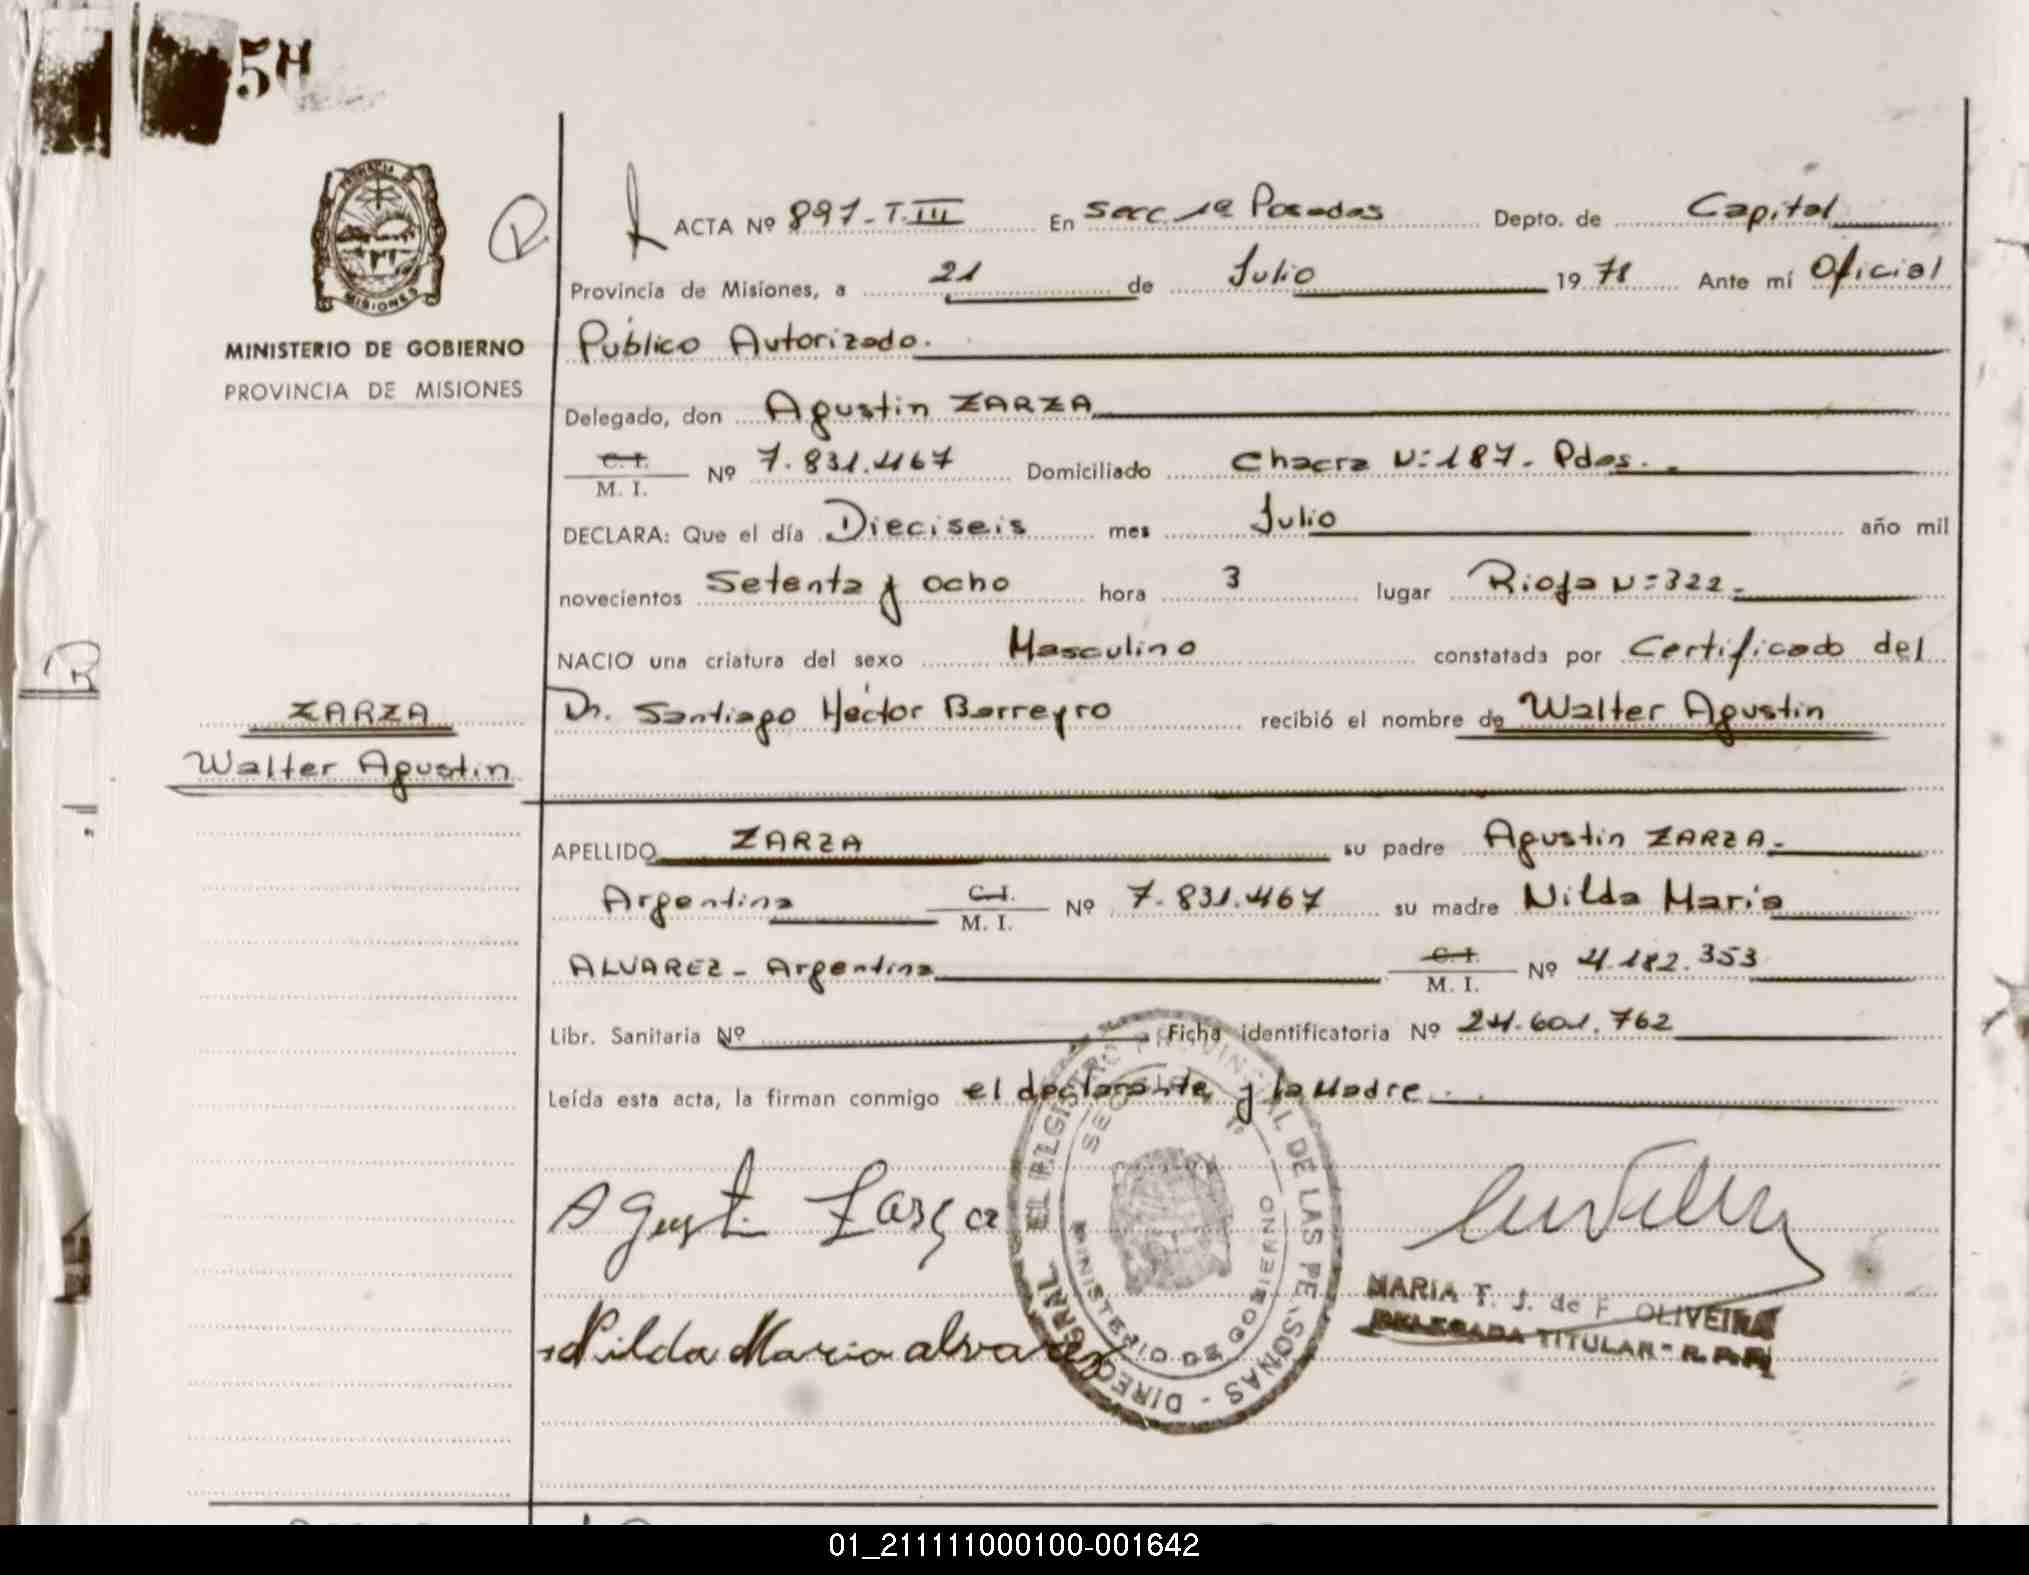 54
PROVINCIA DE
MISIONES
MINISTERIO DE GOBIERNO
PROVINCIA DE MISIONES
R
ACTA Nº 897-T.III En Secc 1ª Posadas Depto. de Capital
Provincia de Misiones, a 21 de Julio 1978 Ante mí Oficial
Público Autorizado.
Delegado, don Agustin ZARZA
C. I.
M. I. Nº 7.831.467 Domiciliado Chacra Nº 187 - Pdas.
DECLARA: Que el día Dieciseis mes Julio año mil
novecientos Setenta y ocho hora 3 lugar Rioja Nº 322.
NACIO una criatura del sexo Masculino constatada por Certificado del
Dr. Santiago Héctor Barreyro recibió el nombre de Walter Agustin
R
ZARZA
Walter Agustin
APELLIDO ZARZA su padre Agustin ZARZA.
Argentina C. I. M. I. Nº 7.831.467 su madre Nilda María
ALVAREZ - Argentina C. I. M. I. Nº 4.182.353
Libr. Sanitaria Nº Ficha identificatoria Nº 24.601.762
Leída esta acta, la firman conmigo el declarante y la Madre.
Agustin Zarza
Nilda Maria alvarez
DIREC. GRAL. DEL REGISTRO PROVINCIAL DE LAS PERSONAS
MINISTERIO DE GOBIERNO
MARIA T. J. de F. OLIVEIRA
DELEGADA TITULAR - R. P. P.
01_211111000100-001642